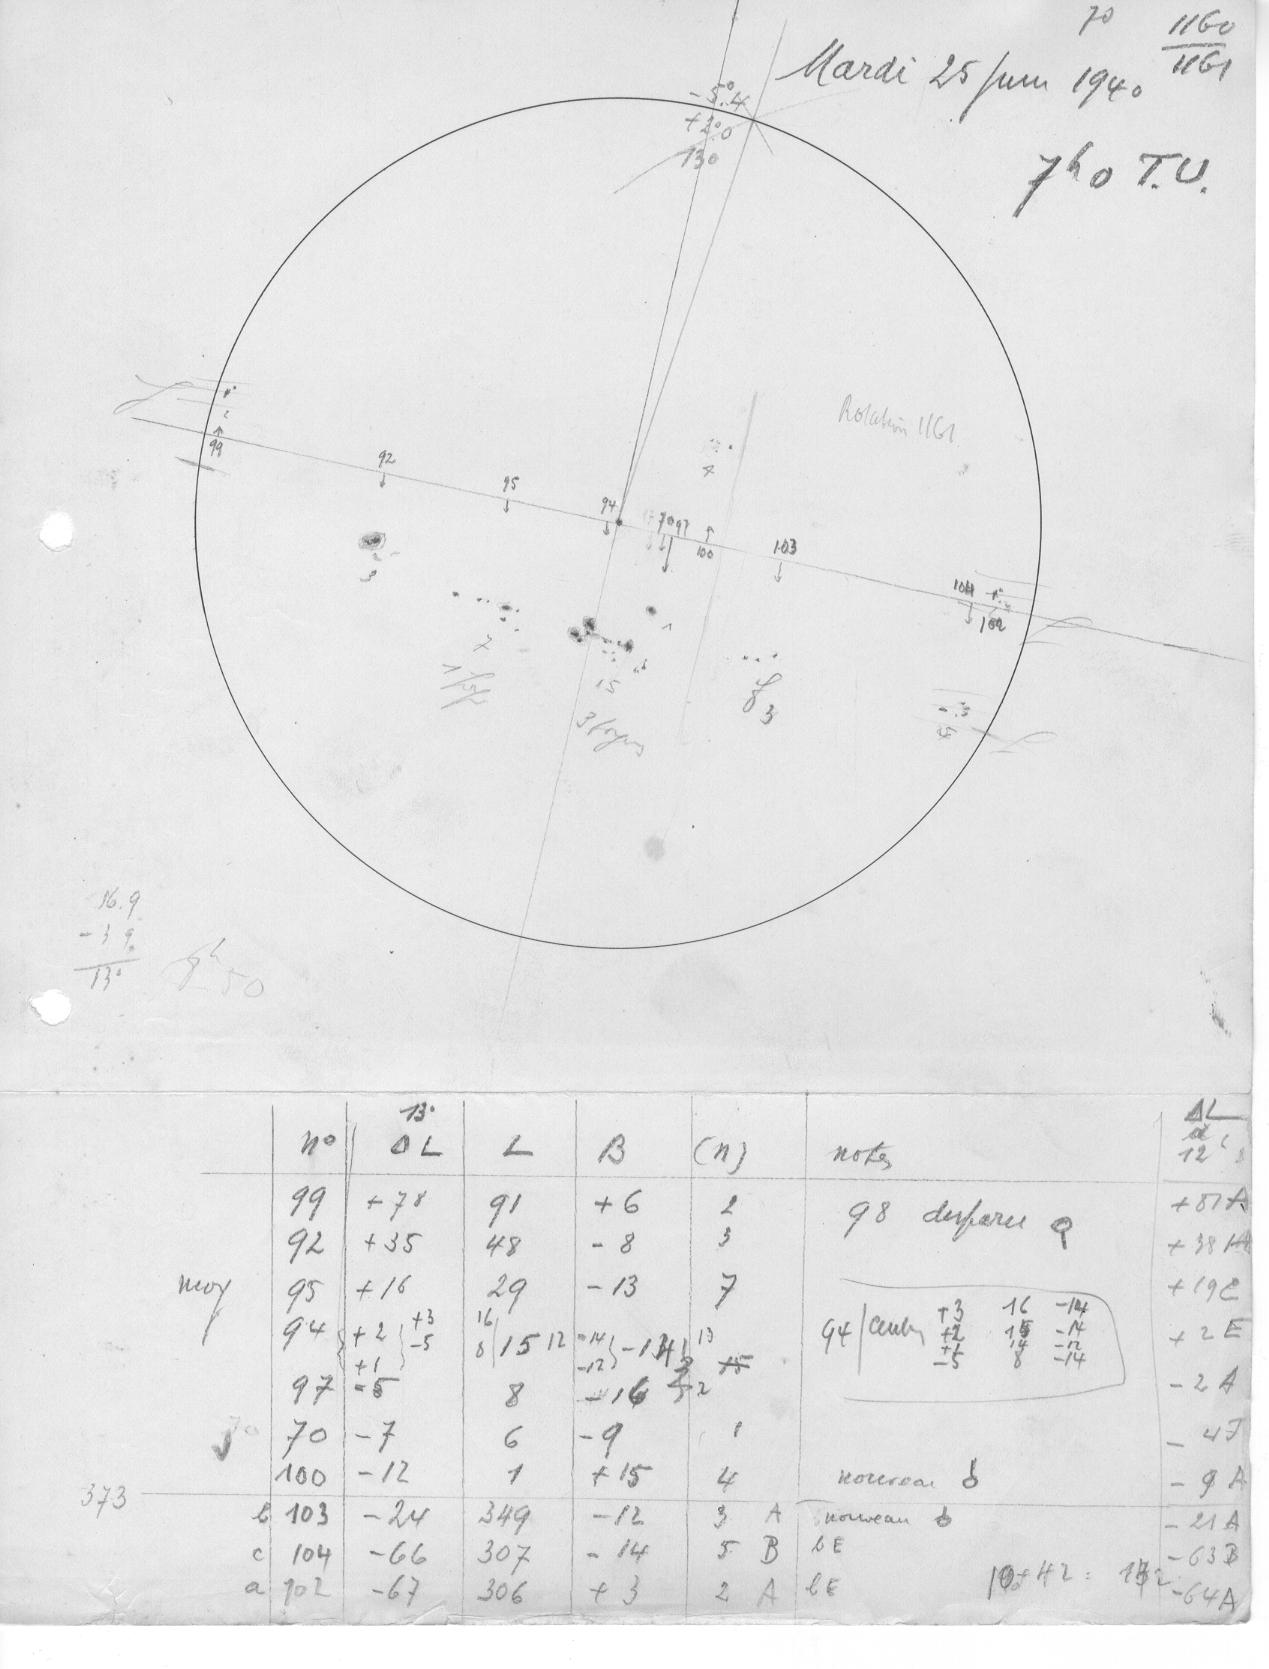 70
1160
1161
Mardi 25 Juin 1940
7h0 T.U.
-5°.4
+2°.0
130
Rotation 1161
99
92
95
94
70 97
100
103
104
102
2
4
3
1
7
15
8 3
4
16.9
- 3 9
13°
50
13°
n° Δ L L B (n) notes
ΔL
à
12
99 +78 91 +6 2 98 disparu +81 A
92 +35 48 - 8 3 +38
moy 95 +16 29 -13 7 +19 E
94 +2 +3 -5 +1 16 8 15 12 -14 -12 13 15 +2 E
94 / centre
+3 16 -14
+2 15 -14
+1 14 -12
-5 8 -14
97 -5 8 -16 2 - 2 A
70 70 -7 6 -9 1 - 4 J
100 -12 1 +15 4 nouveau - 9 A
373
b 103 -24 349 -12 3 A nouveau - 21 A
c 104 -66 307 - 14 5 B bE -63 B
a 102 -67 306 + 3 2 A bE -64 A